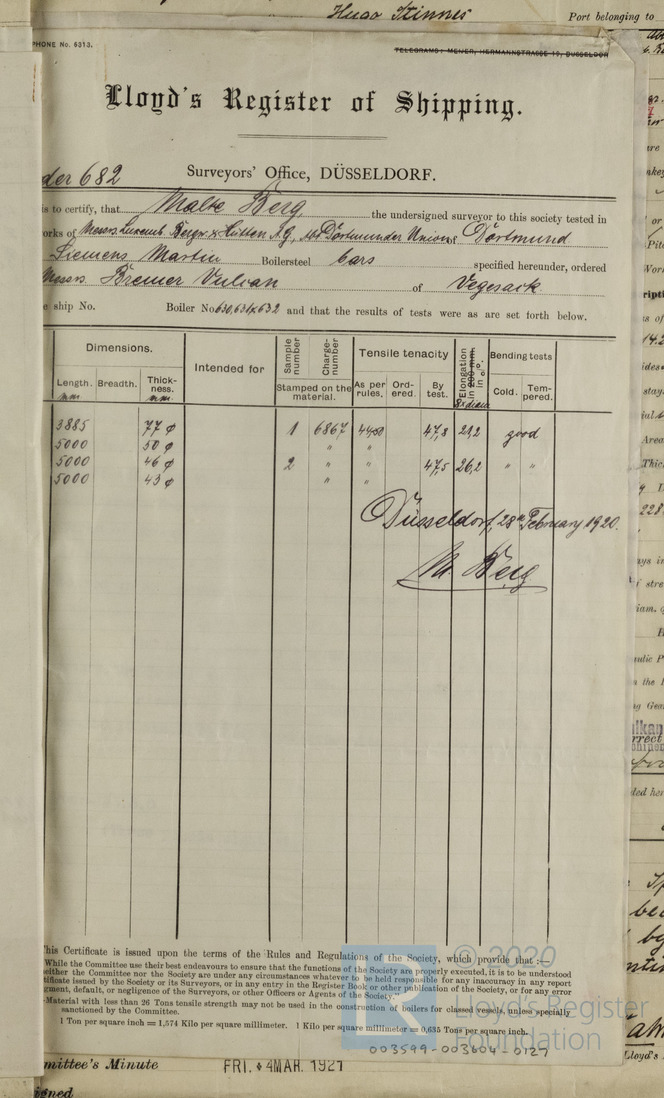 Hugo Stinnes
Port belonging to
PHONE No. 6313.
TELEGRAMS: MEIJER, HERMANNSTRASSE 19, DUSSELDOR
Lloyd's Register of Shipping.
der 682
Surveyors' Office, DÜSSELDORF.
is to certify, that Malte Berg the undersigned surveyor to this society tested in
orks of Messrs Luxemb. Bergw. & Hütten A.G., Dortmunder Union, Dortmund
Siemens Martin Boilersteel bars specified hereunder, ordered
Messrs. Bremer Vulcan of Vegesack
e ship No. Boiler No 630, 631 & 632 and that the results of tests were as are set forth below.
Dimensions. Intended for Sample number Charge-number Tensile tenacity Elongation in 200 mm in %. Bending tests
Length. Breadth. Thick-ness. Stamped on the material. As per rules. Ord-ered. By test. Cold. Tem-pered.
mm mm 8x diam
3885 77 ø 1 6867 44-50 47,8 21,2 good
5000 50 ø " "
5000 46 ø 2 " " 47,5 26,2 " "
5000 43 ø " "
Düsseldorf, 28th February 1920.
M. Berg
his Certificate is issued upon the terms of the Rules and Regulations of the Society, which provide that :—
While the Committee use their best endeavours to ensure that the functions of the Society are properly executed, it is to be understood
either the Committee nor the Society are under any circumstances whatever to be held responsible for any inaccuracy in any report
tificate issued by the Society or its Surveyors, or in any entry in the Register Book or other publication of the Society, or for any error
gment, default, or negligence of the Surveyors, or other Officers or Agents of the Society."
Material with less than 26 Tons tensile strength may not be used in the construction of boilers for classed vessels, unless specially
sanctioned by the Committee.
1 Ton per square inch = 1,574 Kilo per square millimetre. 1 Kilo per square millimetre = 0,635 Tons per square inch.
© 2020
Lloyd's Register
Foundation
003599-003604-0127
mittee's Minute FRI. 4 MAR. 1921
Lloyd's
igned